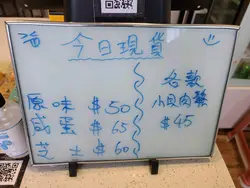 今日現貨
原味 $50
咸蛋 $65
芝士 $60
各款
小貝肉鬆
$45